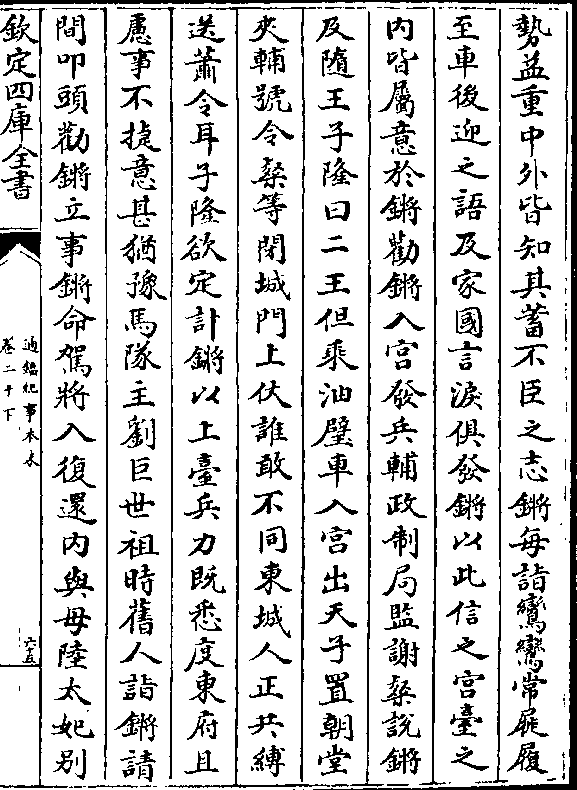 勢益重中外皆知其蓄不臣之志鏘每詣鸞鸞常屣履
至車後迎之語及家國言淚俱發鏘以此信之宮臺之
内皆屬意於鏘勸鏘入宮發兵輔政制局監謝粲説鏘
及隨王子隆曰二王但乘油壁車入宮出天子置朝堂
夾輔號令粲等閉城門上仗誰敢不同東城人正共縛
送蕭令耳子隆欲定計鏘以上臺兵力既悉度東府且
慮事不捷意甚猶豫馬隊主劉巨世祖時舊人詣鏘請
間叩頭勸鏘立事鏘命駕將入復還内與母陸太妃别
欽定四庫全書
通鑑紀事本末
卷二十下
六五